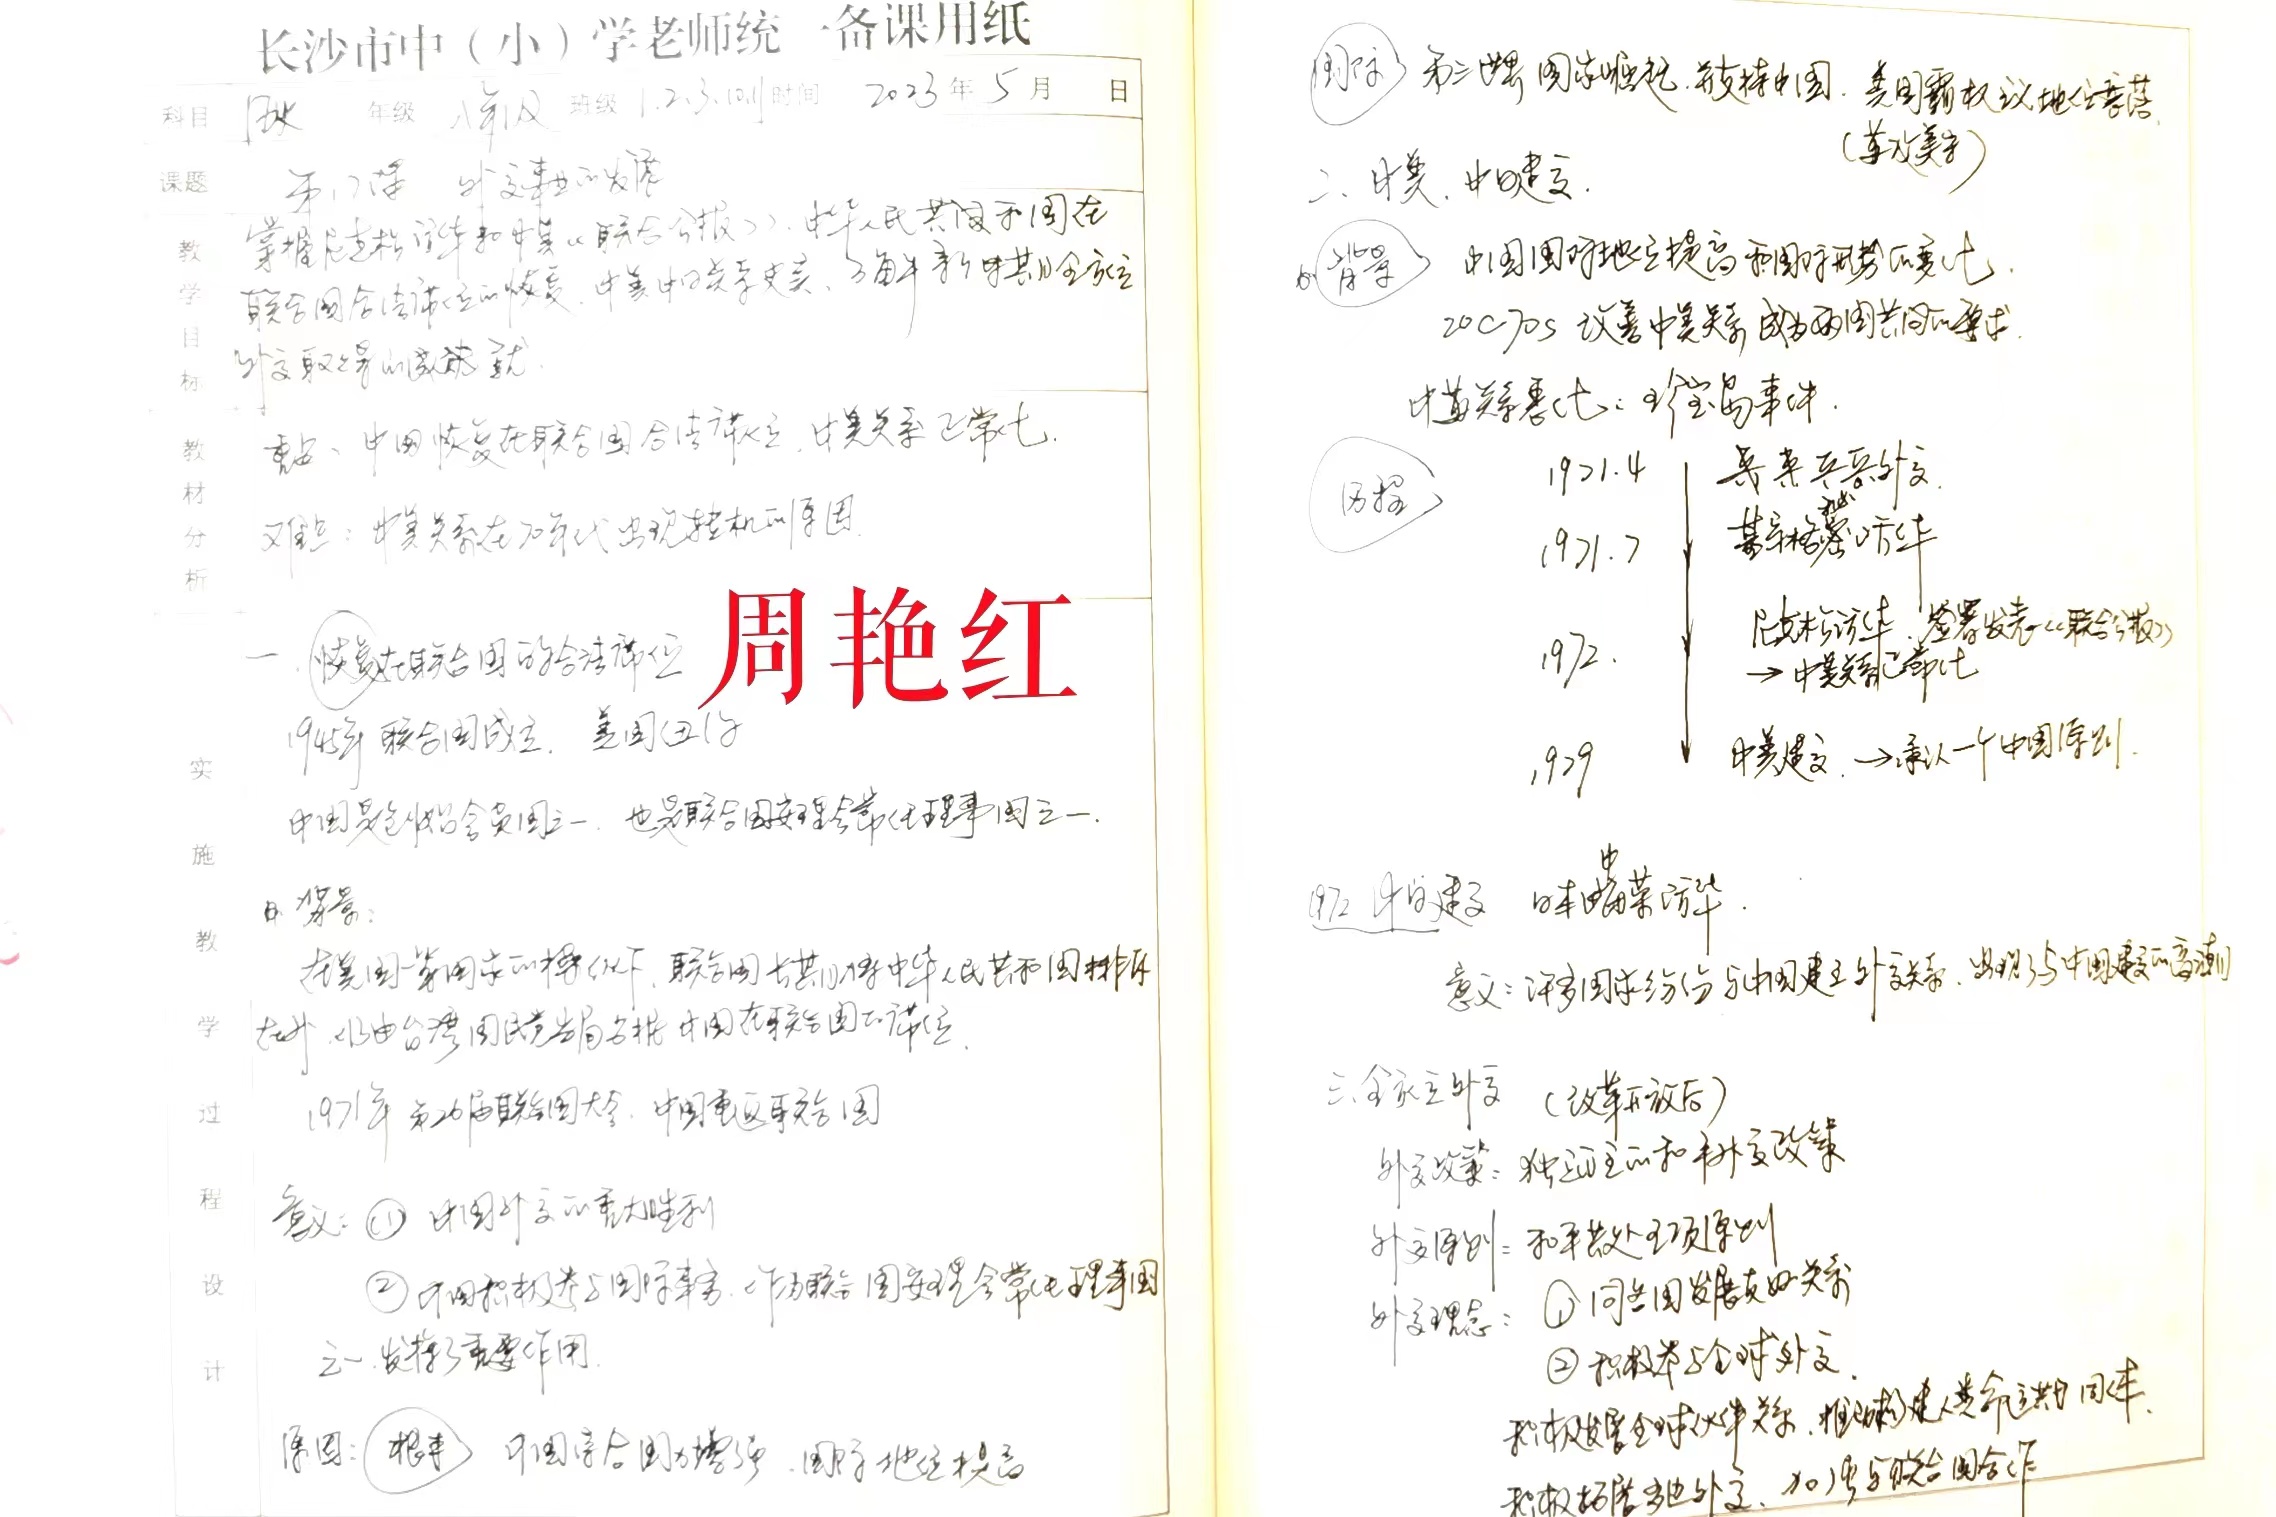 长沙市中（小）学老师统一备课用纸
科目 历史 年级 八年级 班级 1.2.3.10.11 时间 2023年5月 日
课题 第17课 外交事业的发展
教学目标
掌握尼克松访华和中美《联合公报》、中华人民共和国在
联合国合法席位的恢复、中美中日关系史实、了解新时期全方位
外交取得的成就
教材分析
重点、中国恢复在联合国合法席位、中美关系正常化.
难点：中美关系在70年代出现转机的原因.
周艳红
实施教学过程设计
一.恢复在联合国的合法席位
1945年联合国成立. 美国纽约
中国是创始会员国之一. 也是联合国安理会常任理事国之一.
背景：
在美国等国家的操纵下、联合国长期将中华人民共和国排斥
在外、仍由台湾国民党当局占据中国在联合国的席位.
1971年 第26届联合国大会、中国重返联合国
意义：① 中国外交的重大胜利
② 中国积极参与国际事务、作为联合国安理会常任理事国
之一、发挥了重要作用.
原因：根本 中国综合国力增强、国际地位提高
国际 第三世界国家崛起、并支持中国. 美国霸权主义地位衰落.
二、中美、中日建交.
背景 中国国际地位提高和国际形势的变化.
20C70s 改善中美关系成为两国共同的要求.
中苏关系恶化：珍宝岛事件.
历程
1971.4 乒乓外交.
1971.7 基辛格秘密访华
1972. 尼克松访华、签署发表《联合公报》
→中美关系正常化
1979 中美建交. →承认一个中国原则.
1972 中日建交 日本田中角荣访华.
意义：许多国家纷纷与中国建立外交关系、出现了与中国建交的高潮
三.全方位外交 （改革开放后）
外交政策：独立自主的和平外交政策
外交原则：和平共处五项原则
外交理念：① 同各国发展友好关系
② 积极参与全球外交.
积极发展全球伙伴关系、推动构建人类命运共同体.
积极拓展多边外交、加强与联合国合作